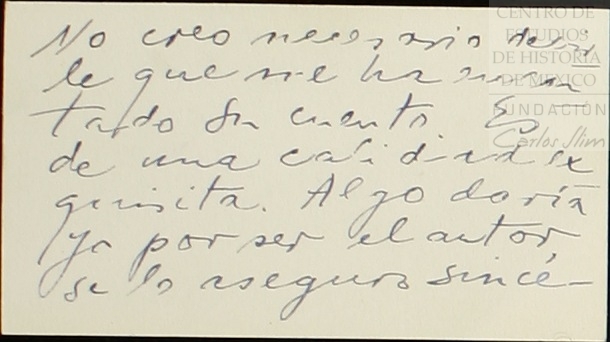 No creo necesario decir
le que me ha encan
tado su cuento. Es
de una calidad ex
quisita. Algo daría
yo por ser el autor
se lo aseguro sincé-
CENTRO DE
ESTUDIOS
DE HISTORIA
DE MÉXICO
FUNDACIÓN
Carlos Slim